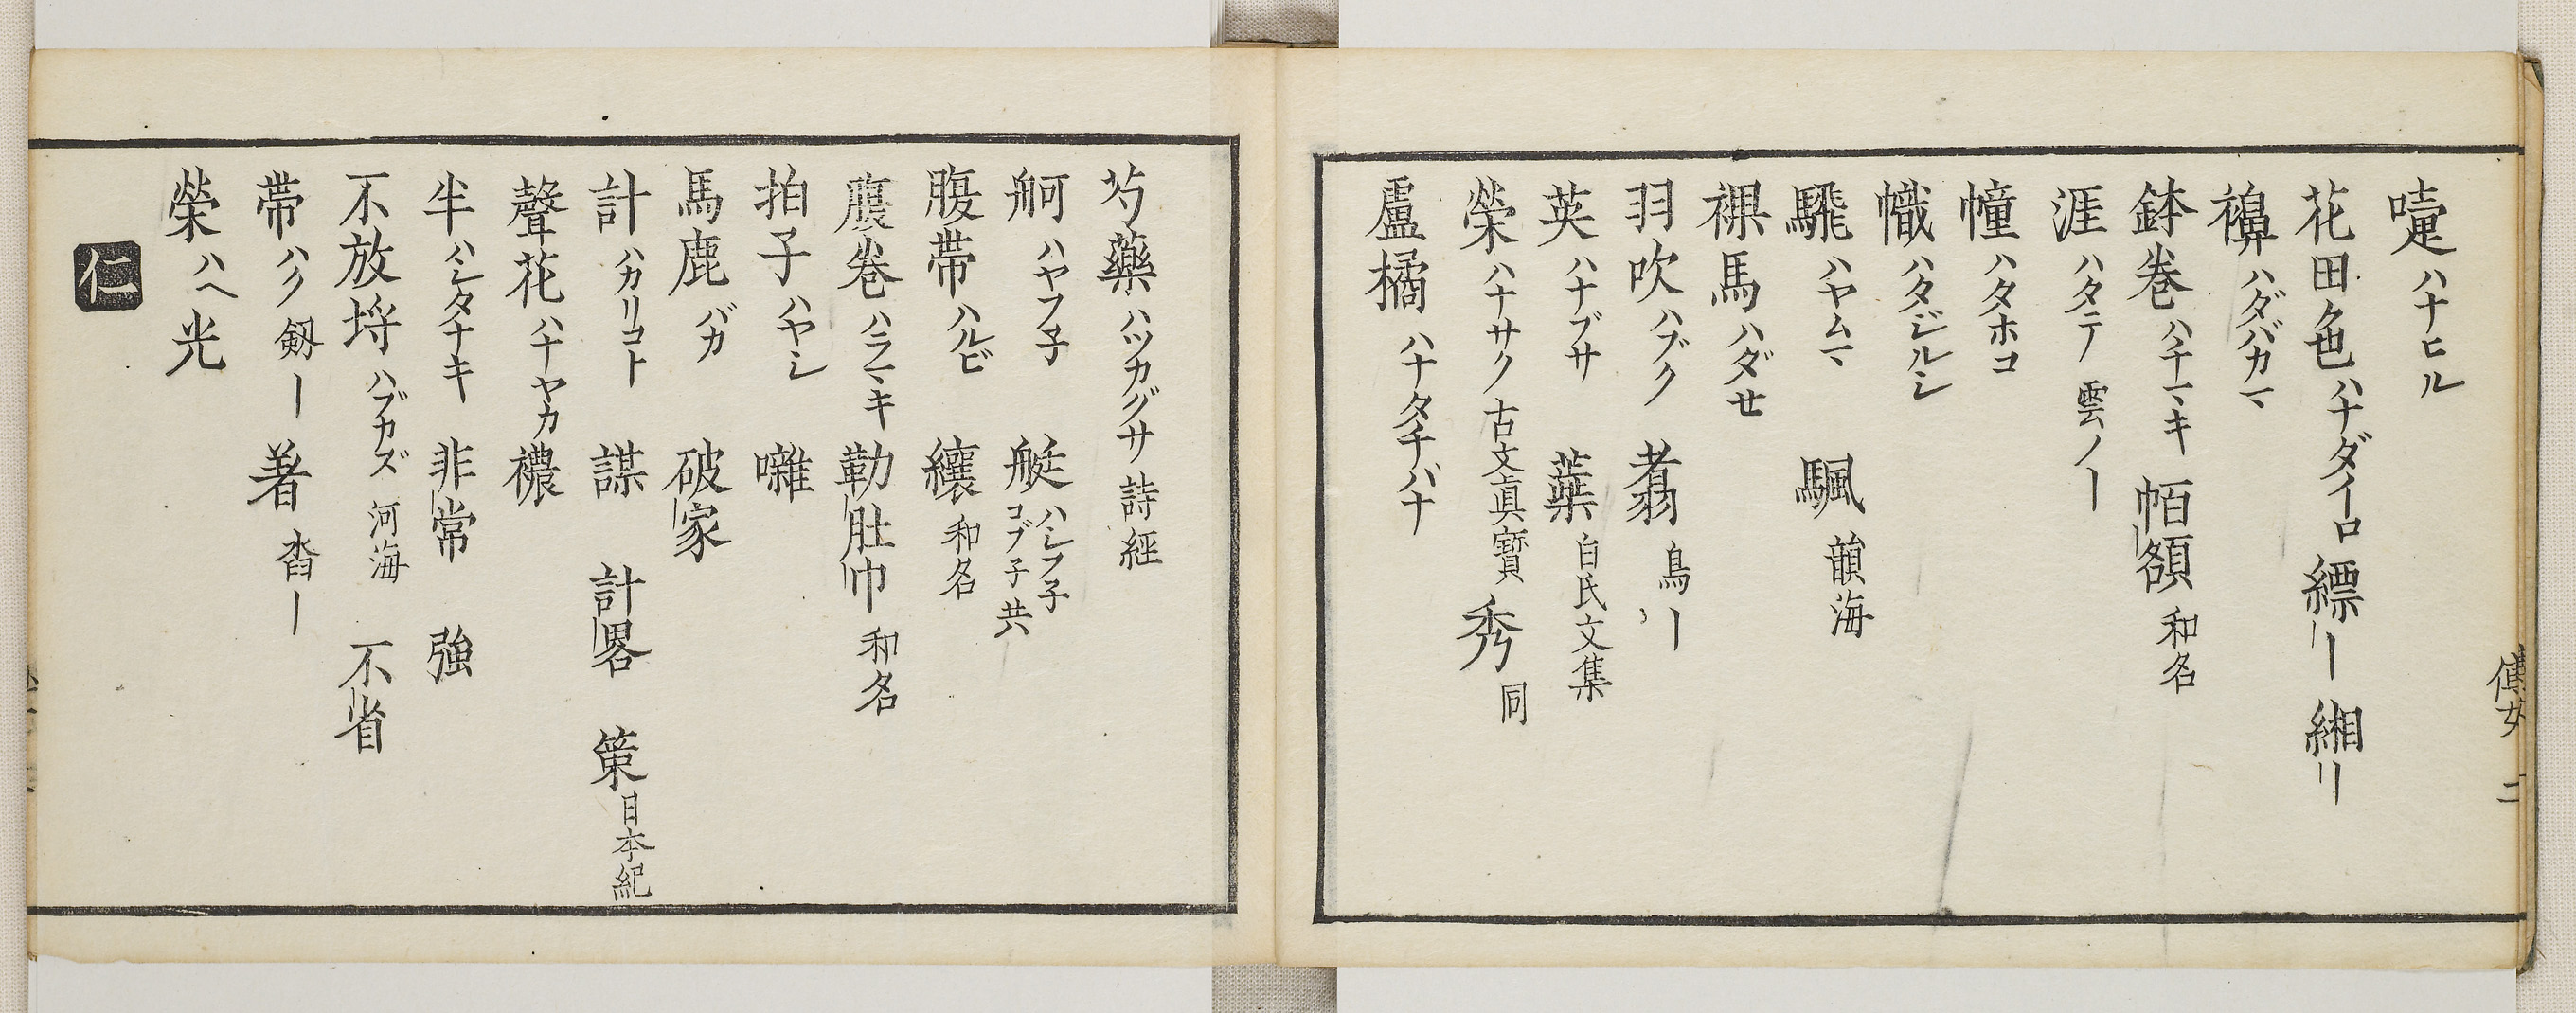 嚏ハナヒル
花田色ハナダイロ 縹〡 緗〡
襣ハダバカマ
鉢巻ハチマキ 帞額 和名
涯ハタテ 雲ノ〡
幢ハタホコ
幟ハタジルシ
騛ハヤムマ 颿 韻海
裸馬ハダセ
羽吹ハブク 翥 鳥〡
英ハナブサ 蘂 白氏文集
榮ハナサク 古文眞寳 秀 同
盧橘ハナタチバナ
芍藥ハツカグサ 詩經
舸ハヤフ子 艇 ハシフ子 コブ子共
腹帯ハルビ 纕 和名
腹巻ハラマキ 勒肚巾 和名
拍子ハヤシ 囃
馬鹿バカ 破家
計ハカリコト 謀 計畧 策 日本紀
聲花ハナヤカ 襛
半ハシタナキ 非常 強
不放埒ハブカズ 河海 不省
帯ハク 剱〡 著 沓〡
榮ハヘ 光
仁
二